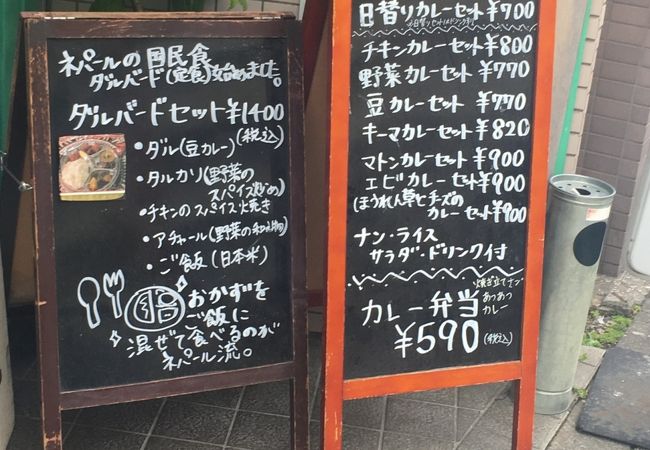 ネパールの国民食
ダルバード(定食)始めました。
ダルバードセット¥1400
(税込)
・ダル(豆カレー)
・タルカリ(野菜の
スパイス炒め)
・チキンのスパイス焼き
・アチャール(野菜の和え物)
・ご飯(日本米)
おかずを
ご飯に
混ぜて食べるのが
ネパール流。
日替りカレーセット¥700
チキンカレーセット¥800
野菜カレーセット¥770
豆カレーセット¥770
キーマカレーセット¥820
マトンカレーセット¥900
エビカレーセット¥900
(ほうれん草とチーズの
カレーセット¥900
ナン・ライス
サラダ・ドリンク付
焼き立てナン
あつあつ
カレー
カレー弁当
¥590(税込)